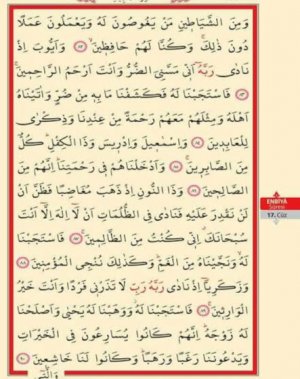 وَمِنَ الشَّيَاطِينِ مَنْ يَغُوصُونَ لَهُ وَيَعْمَلُونَ عَمَلًا
دُونَ ذٰلِكَۚ وَكُنَّا لَهُمْ حَافِظِينَۙ ﴿٨٢﴾ وَاَيُّوبَ اِذْ
نَادٰى رَبَّهُٓ اَنِّي مَسَّنِيَ الضُّرُّ وَاَنْتَ اَرْحَمُ الرَّاحِمِينَۚ
﴿٨٣﴾ فَاسْتَجَبْنَا لَهُ فَكَشَفْنَا مَا بِهِ مِنْ ضُرٍّ وَاٰتَيْنَاهُ
اَهْلَهُ وَمِثْلَهُمْ مَعَهُمْ رَحْمَةً مِنْ عِنْدِنَا وَذِكْرٰى
لِلْعَابِدِينَ ﴿٨٤﴾ وَاِسْمٰعِيلَ وَاِدْرِيسَ وَذَا الْكِفْلِۜ كُلٌّ
مِنَ الصَّابِرِينَۚ ﴿٨٥﴾ وَاَدْخَلْنَاهُمْ فِي رَحْمَتِنَاۜ اِنَّهُمْ مِنَ
الصَّالِحِينَ ﴿٨٦﴾ وَذَا النُّونِ اِذْ ذَهَبَ مُغَاضِبًا فَظَنَّ اَنْ
لَنْ نَقْدِرَ عَلَيْهِ فَنَادٰى فِي الظُّلُمَاتِ اَنْ لَٓا اِلٰهَ اِلَّٓا اَنْتَ
سُبْحَانَكَۗ اِنِّي كُنْتُ مِنَ الظَّالِمِينَۚ ﴿٨٧﴾ فَاسْتَجَبْنَا
لَهُۙ وَنَجَّيْنَاهُ مِنَ الْغَمِّۜ وَكَذٰلِكَ نُنْجِي الْمُؤْمِنِينَ ﴿٨٨﴾
وَزَكَرِيَّٓا اِذْ نَادٰى رَبَّهُ رَبِّ لَا تَذَرْنِي فَرْدًا وَاَنْتَ خَيْرُ
الْوَارِثِينَۚ ﴿٨٩﴾ فَاسْتَجَبْنَا لَهُۘ وَوَهَبْنَا لَهُ يَحْيٰى وَاَصْلَحْنَا
لَهُ زَوْجَهُۜ اِنَّهُمْ كَانُوا يُسَارِعُونَ فِي الْخَيْرَاتِ
وَيَدْعُونَنَا رَغَبًا وَرَهَبًاۜ وَكَانُوا لَنَا خَاشِعِينَ ﴿٩٠﴾
وَالَّتِي
ENBİYÂ
Sûresi
17. Cüz